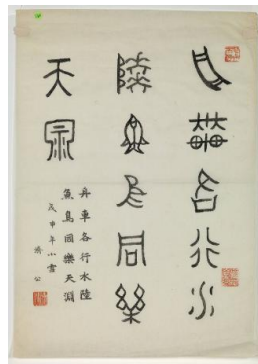 舟車各行水
陸魚鳥同樂
天淵
舟車各行水陸
魚鳥同樂天淵
戊申年小雪